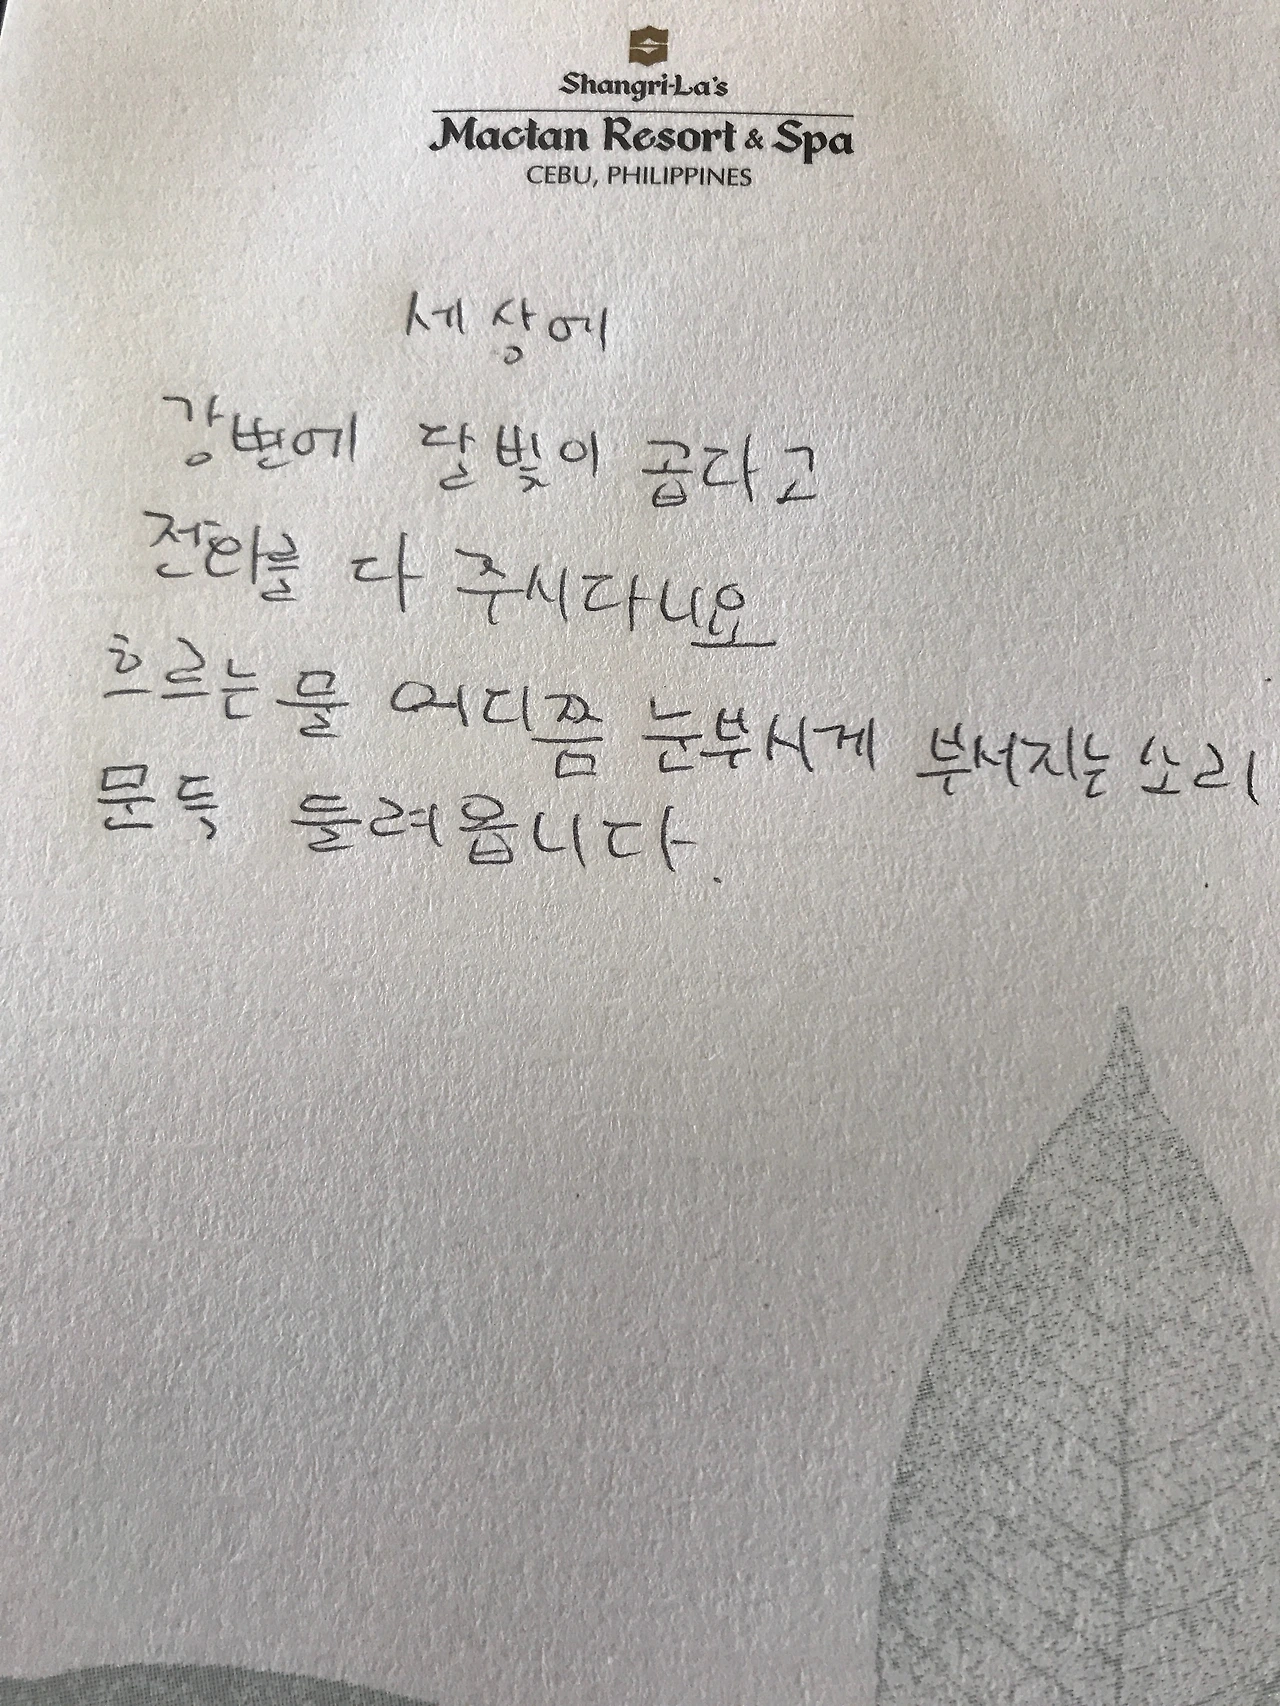 Shangri-La's
Mactan Resort & Spa
CEBU, PHILIPPINES
세상에
강변에 달빛이 곱다고
전화를 다 주시다니요
흐르는 물 어디쯤 눈부시게 부서지는 소리
문득 들려옵니다.